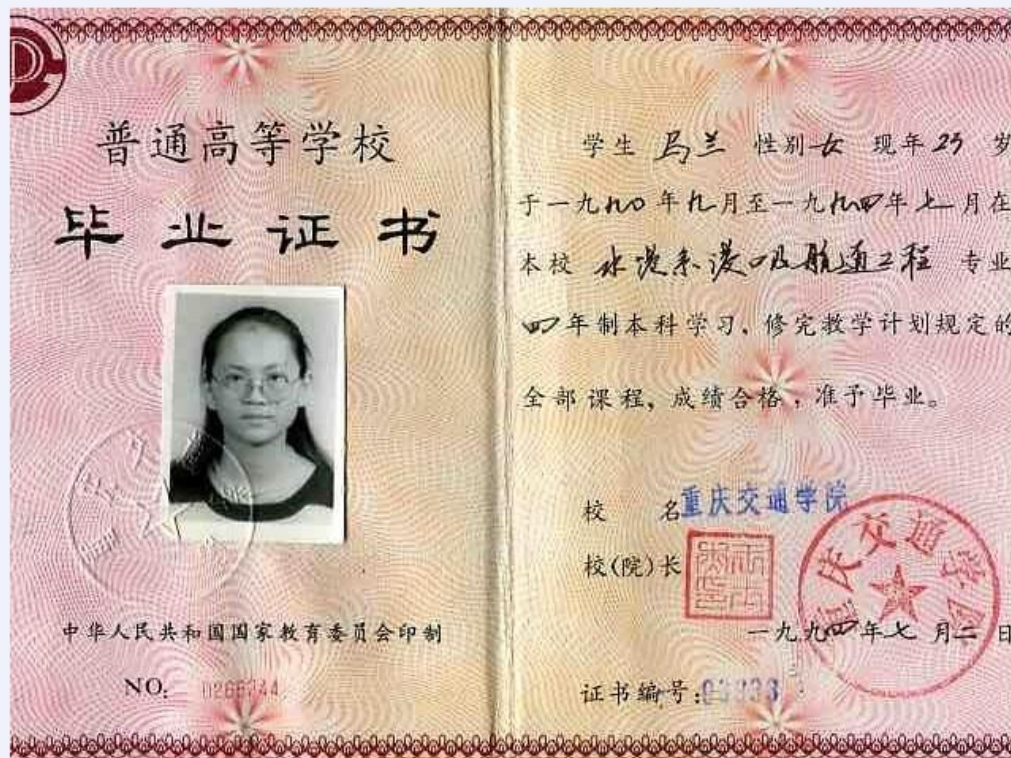 普通高等学校
毕业证书
中华人民共和国国家教育委员会印制
NO:
学生 马兰 性别 女 现年 23 岁
于一九九〇年九月至一九九四年七月在
本校 水港系港口及航道工程 专业
四年制本科学习、修完教学计划规定的
全部课程,成绩合格,准予毕业。
校 名 重庆交通学院
校(院)长
重庆交通学院
一九九四年七月二日
证书编号: